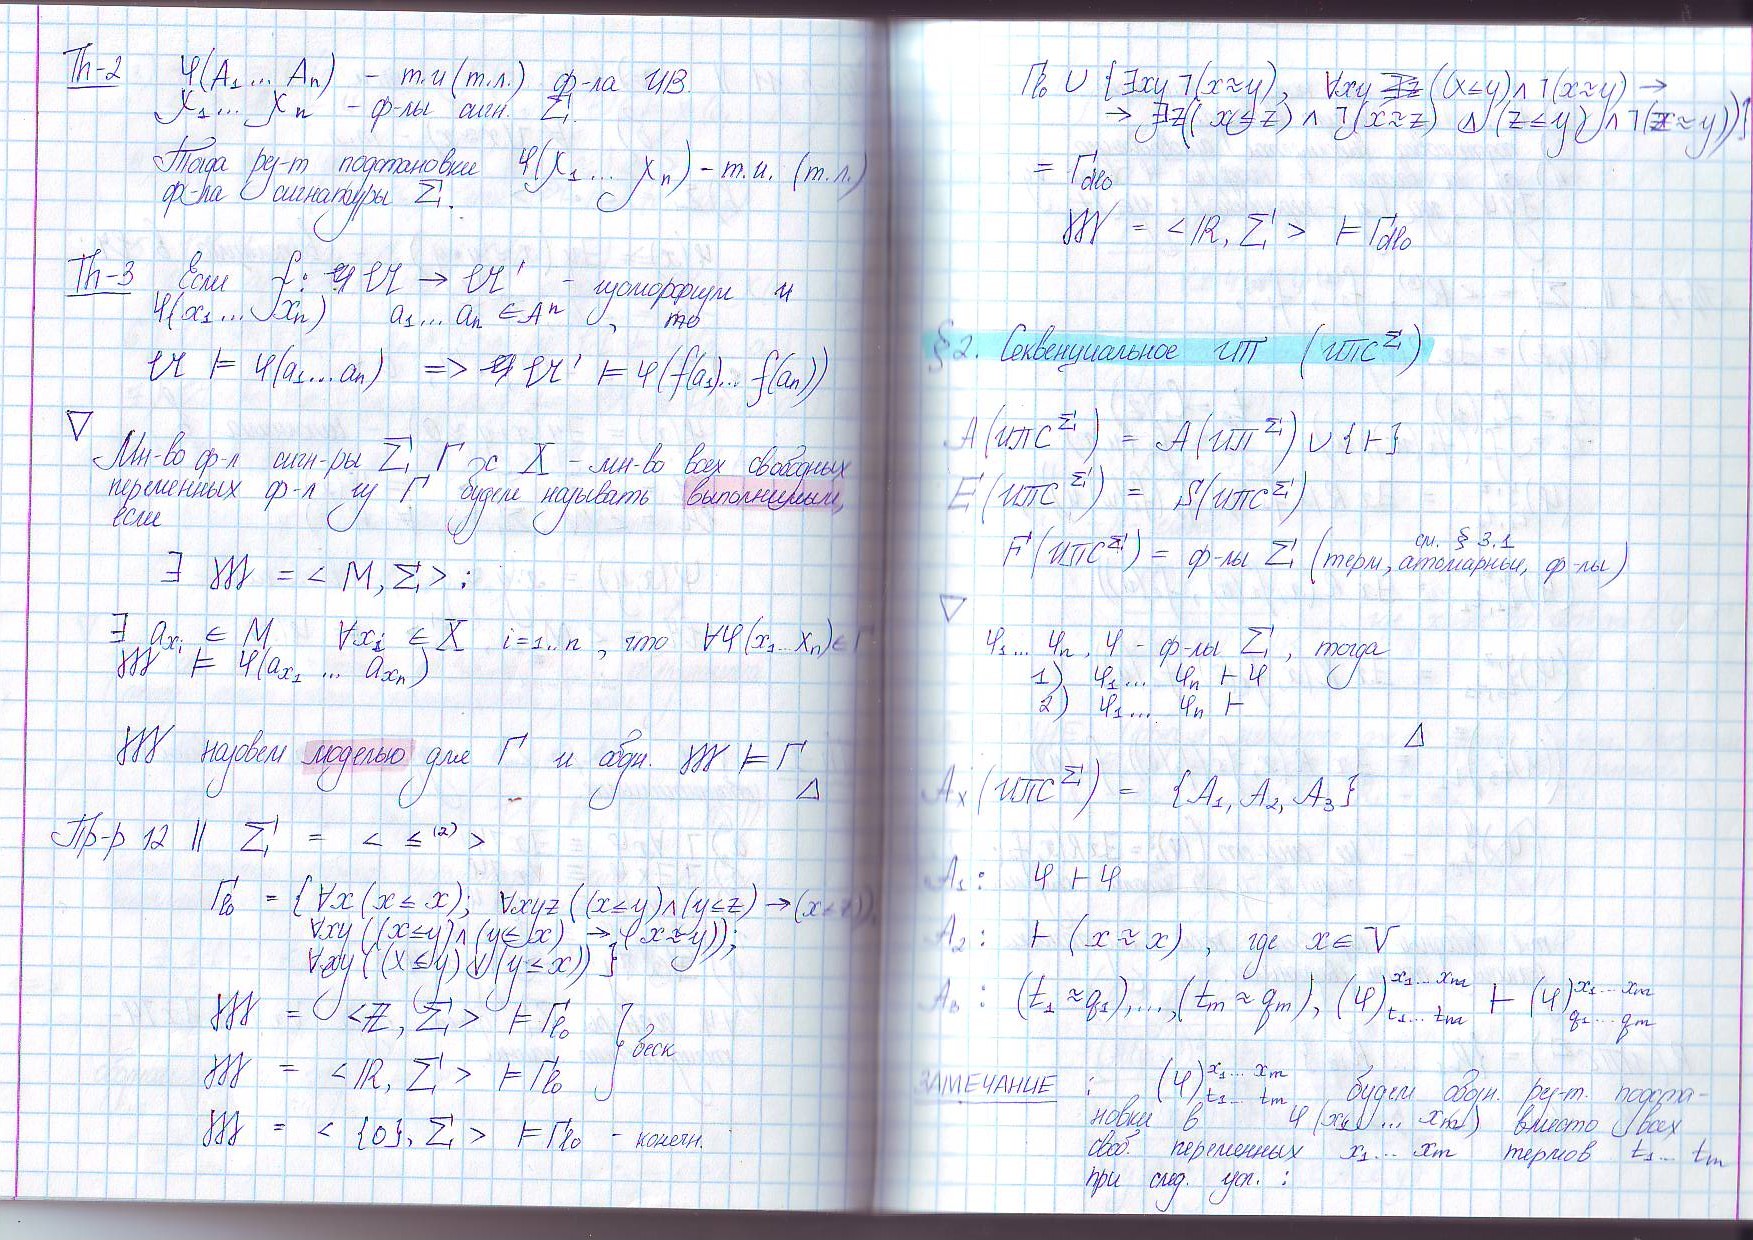 Th-2 φ(A₁... Aₙ) - т.и (т.л.) ф-ла ИВ.
χ₁... χₙ - ф-лы сигн. Σ.
Тогда рез-т подстановки φ(χ₁... χₙ) - т.и. (т.л.)
ф-ла сигнатуры Σ.
Th-3 Если f: 𝔄 → 𝔄' - изоморфизм и
φ(x₁... xₙ) a₁...aₙ ∈ Aⁿ, то
𝔄 ⊨ φ(a₁...aₙ) => 𝔄' ⊨ φ(f(a₁)... f(aₙ))
▽
Мн-во ф-л сигн-ры Σ Γ с X - мн-во всех свободных
переменных ф-л из Γ будем называть выполнимым,
если
∃ 𝔐 = < M, Σ > :
∃ a_{xᵢ} ∈ M ∀xᵢ ∈ X i=1..n, что ∀φ(x₁...xₙ) ∈ Γ
𝔐 ⊨ φ(a_{x₁} ... a_{xₙ})
𝔐 назовем моделью для Γ и обозн. 𝔐 ⊨ Γ
△
Пр-р 12 || Σ = < ≤⁽²⁾ >
Γ_{lo} = { ∀x (x ≤ x); ∀xyz ((x≤y)∧(y≤z) → (x≤z));
∀xy ((x≤y)∧(y≤x) → (x≈y));
∀xy ((x≤y)∨(y≤x)) }
𝔐 = <ℤ, Σ> ⊨ Γ_{lo}
беск
𝔐 = <ℝ, Σ> ⊨ Γ_{lo}
𝔐 = < {0}, Σ > ⊨ Γ_{lo} - конечн.
Γ_{lo} ∪ { ∃xy ¬(x≈y), ∀xy ((x≤y)∧¬(x≈y) →
→ ∃z( (x≤z) ∧ ¬(x≈z) ∧ (z≤y) ∧ ¬(z≈y)) }
= Γ_{dlo}
𝔐 = < ℝ, Σ > ⊨ Γ_{dlo}
§2. Секвенциальное ИП (ИПС^Σ)
A(ИПС^Σ) = A(ИП^Σ) ∪ {⊢}
E(ИПС^Σ) = S(ИПС^Σ)
см. § 3.1
F(ИПС^Σ) = ф-лы Σ (терм, атомарные, ф-лы)
▽
φ₁... φₙ, φ - ф-лы Σ, тогда
1) φ₁... φₙ ⊢ φ
2) φ₁... φₙ ⊢
△
Aₓ(ИПС^Σ) = {A₁, A₂, A₃}
A₁: φ ⊢ φ
A₂: ⊢ (x ≈ x), где x ∈ V
A₃: (t₁≈q₁),...,(tₘ≈qₘ), (φ)^{x₁...xₘ}_{t₁...tₘ} ⊢ (φ)^{x₁...xₘ}_{q₁...qₘ}
ЗАМЕЧАНИЕ : (φ)^{x₁...xₘ}_{t₁...tₘ} будем обозн. рез-т. подста-
новки в φ(x₁... xₘ) вместо всех
своб. переменных x₁... xₘ термов t₁... tₘ
при след. усл. :